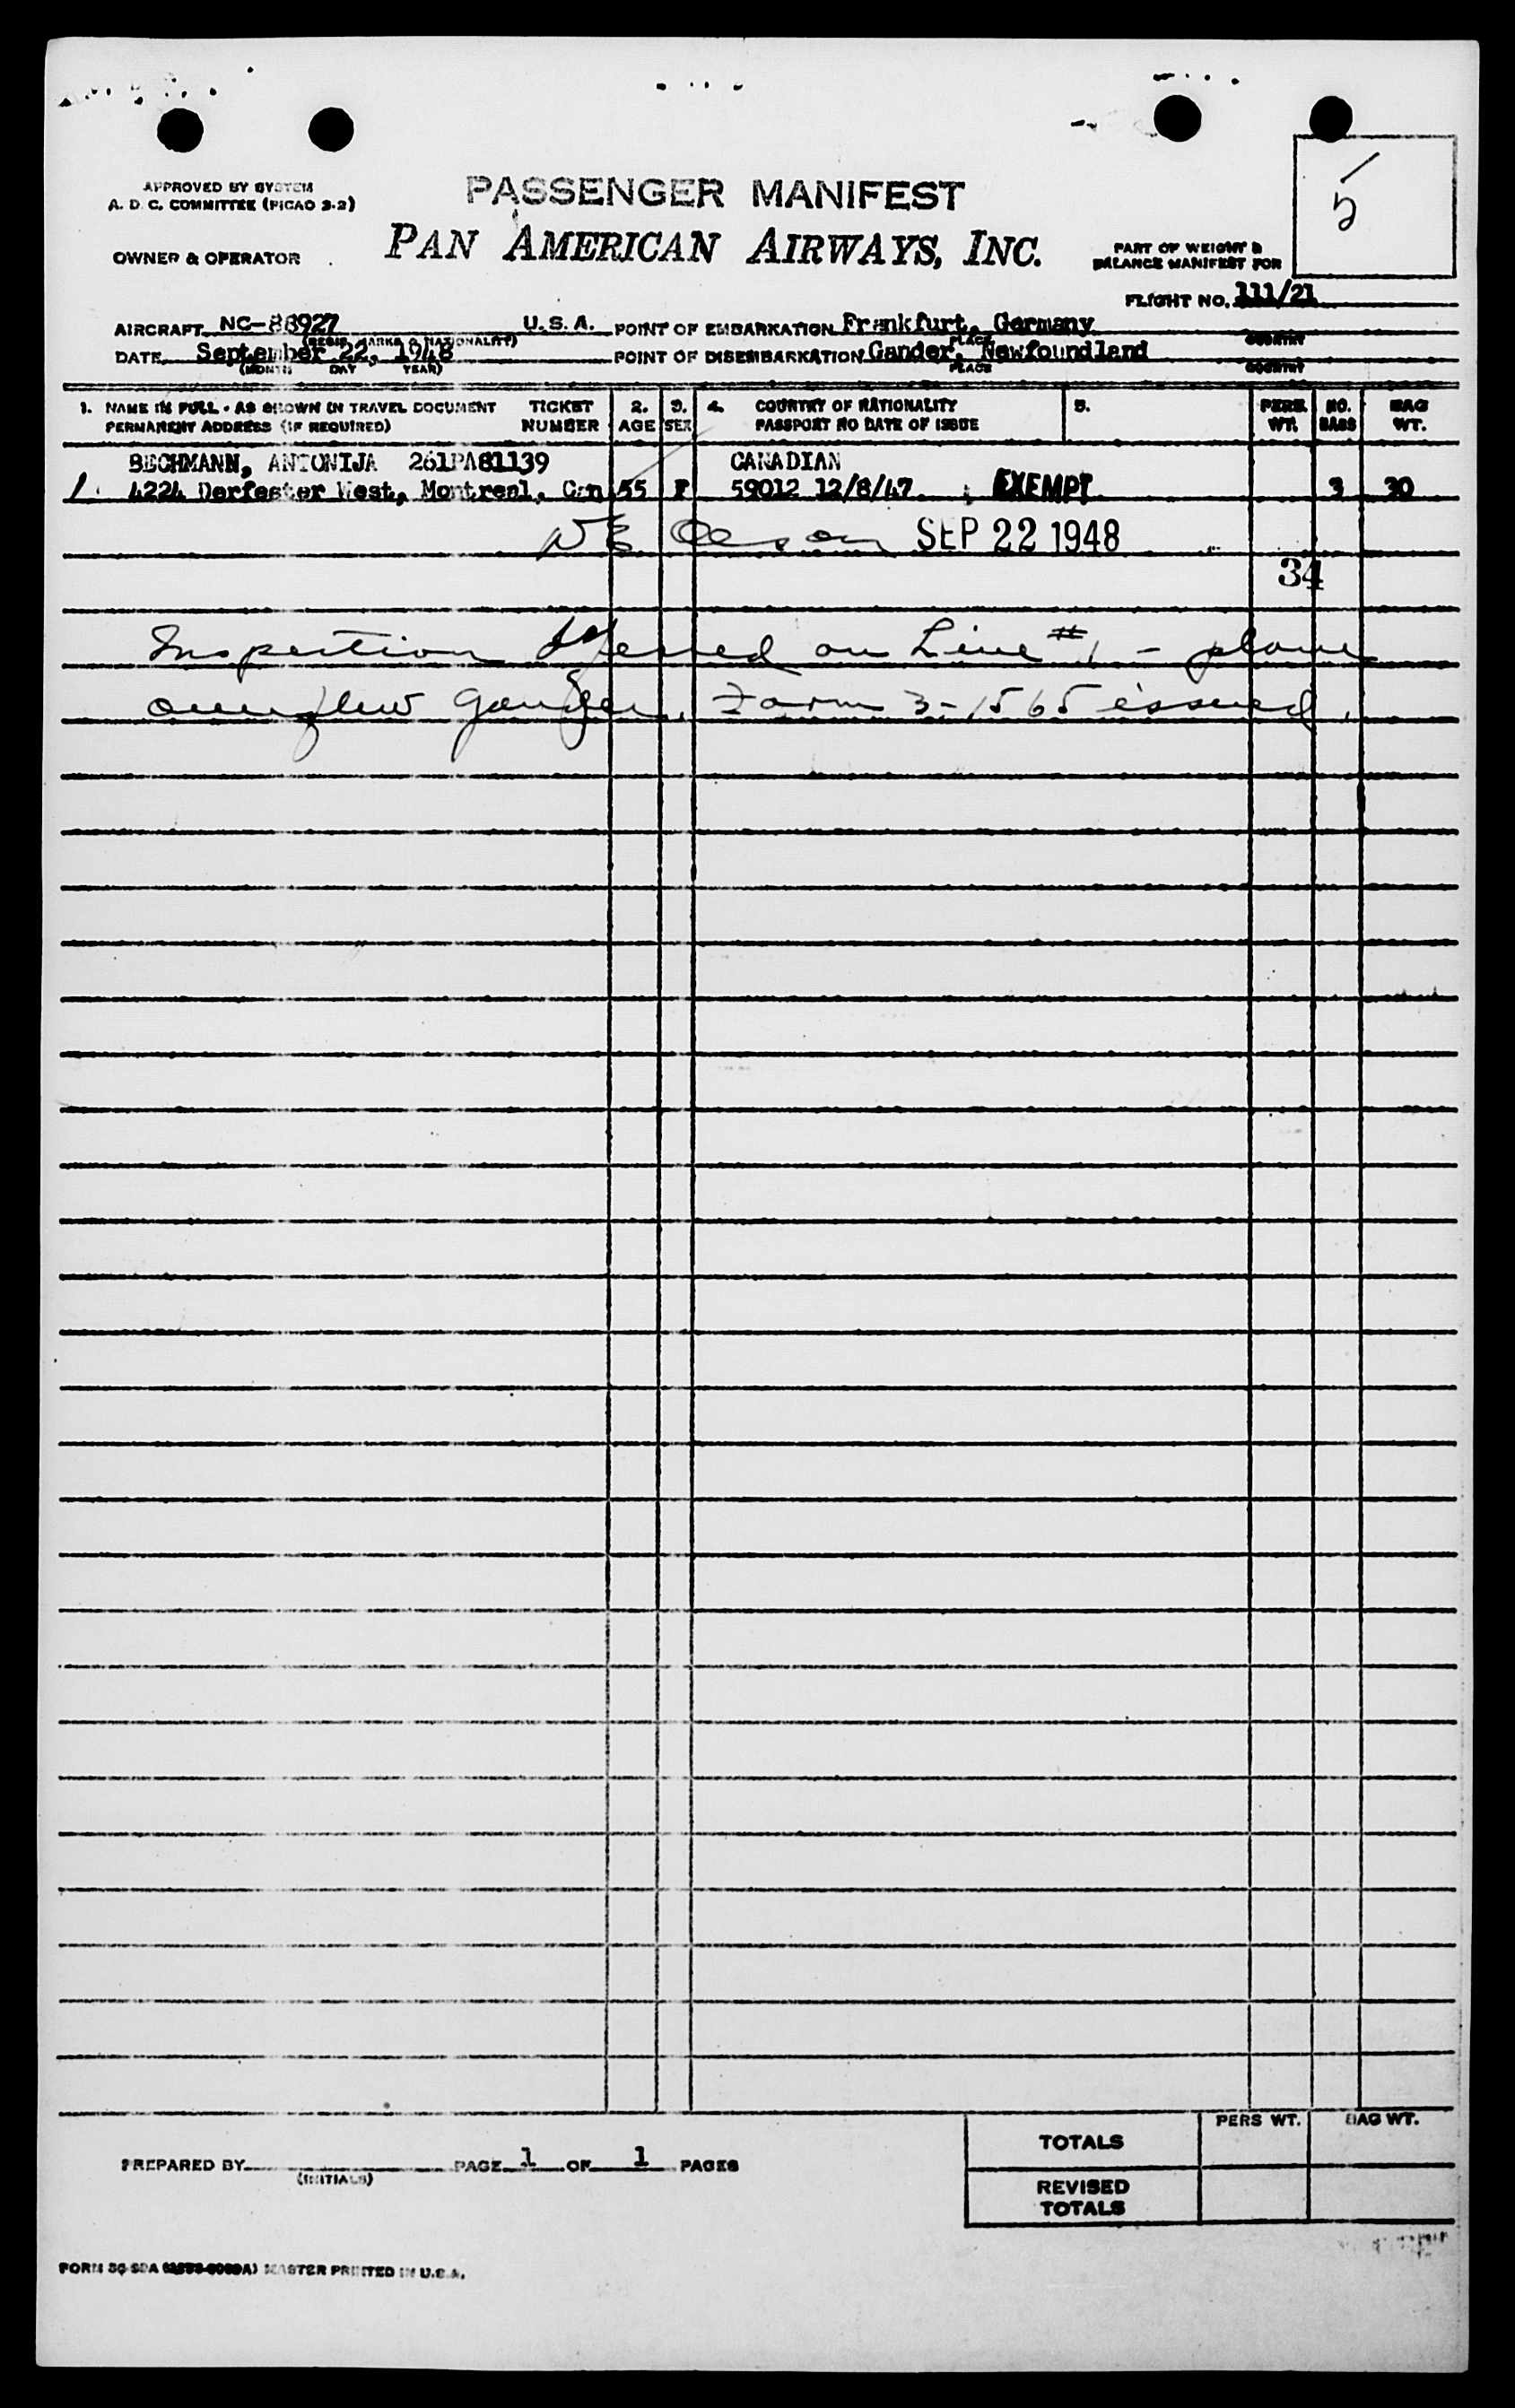 5
APPROVED BY SYSTEM
A. D. C. COMMITTEE (PICAO 3-2)
PASSENGER MANIFEST
OWNER & OPERATOR
PAN AMERICAN AIRWAYS, INC.
PART OF WEIGHT &
BALANCE MANIFEST FOR
FLIGHT NO. 111/21
AIRCRAFT NC-88927 U.S.A. POINT OF EMBARKATION Frankfurt, Germany
(REGIS. MARKS & NATIONALITY) PLACE COUNTRY
DATE September 22, 1948 POINT OF DISEMBARKATION Gander, Newfoundland
(MONTH DAY YEAR) PLACE COUNTRY
1. NAME IN FULL - AS SHOWN IN TRAVEL DOCUMENT TICKET 2. 3. 4. COUNTRY OF NATIONALITY 5. PERS. NO. BAG
PERMANENT ADDRESS (IF REQUIRED) NUMBER AGE SEX PASSPORT NO DATE OF ISSUE WT. BAGS WT.
BECHMANN, ANTONIJA 261PA81139 CANADIAN
1. 4224 Dorfester West, Montreal, Can 55 F 59012 12/8/47 EXEMPT 3 30
SEP 22 1948
34
Inspection on Line #1 - plane
overflew Gander. Form 3-1565 issued.
TOTALS PERS WT. BAG WT.
PREPARED BY PAGE 1 OF 1 PAGES
(INITIALS)
REVISED
TOTALS
MASTER PRINTED IN U.S.A.